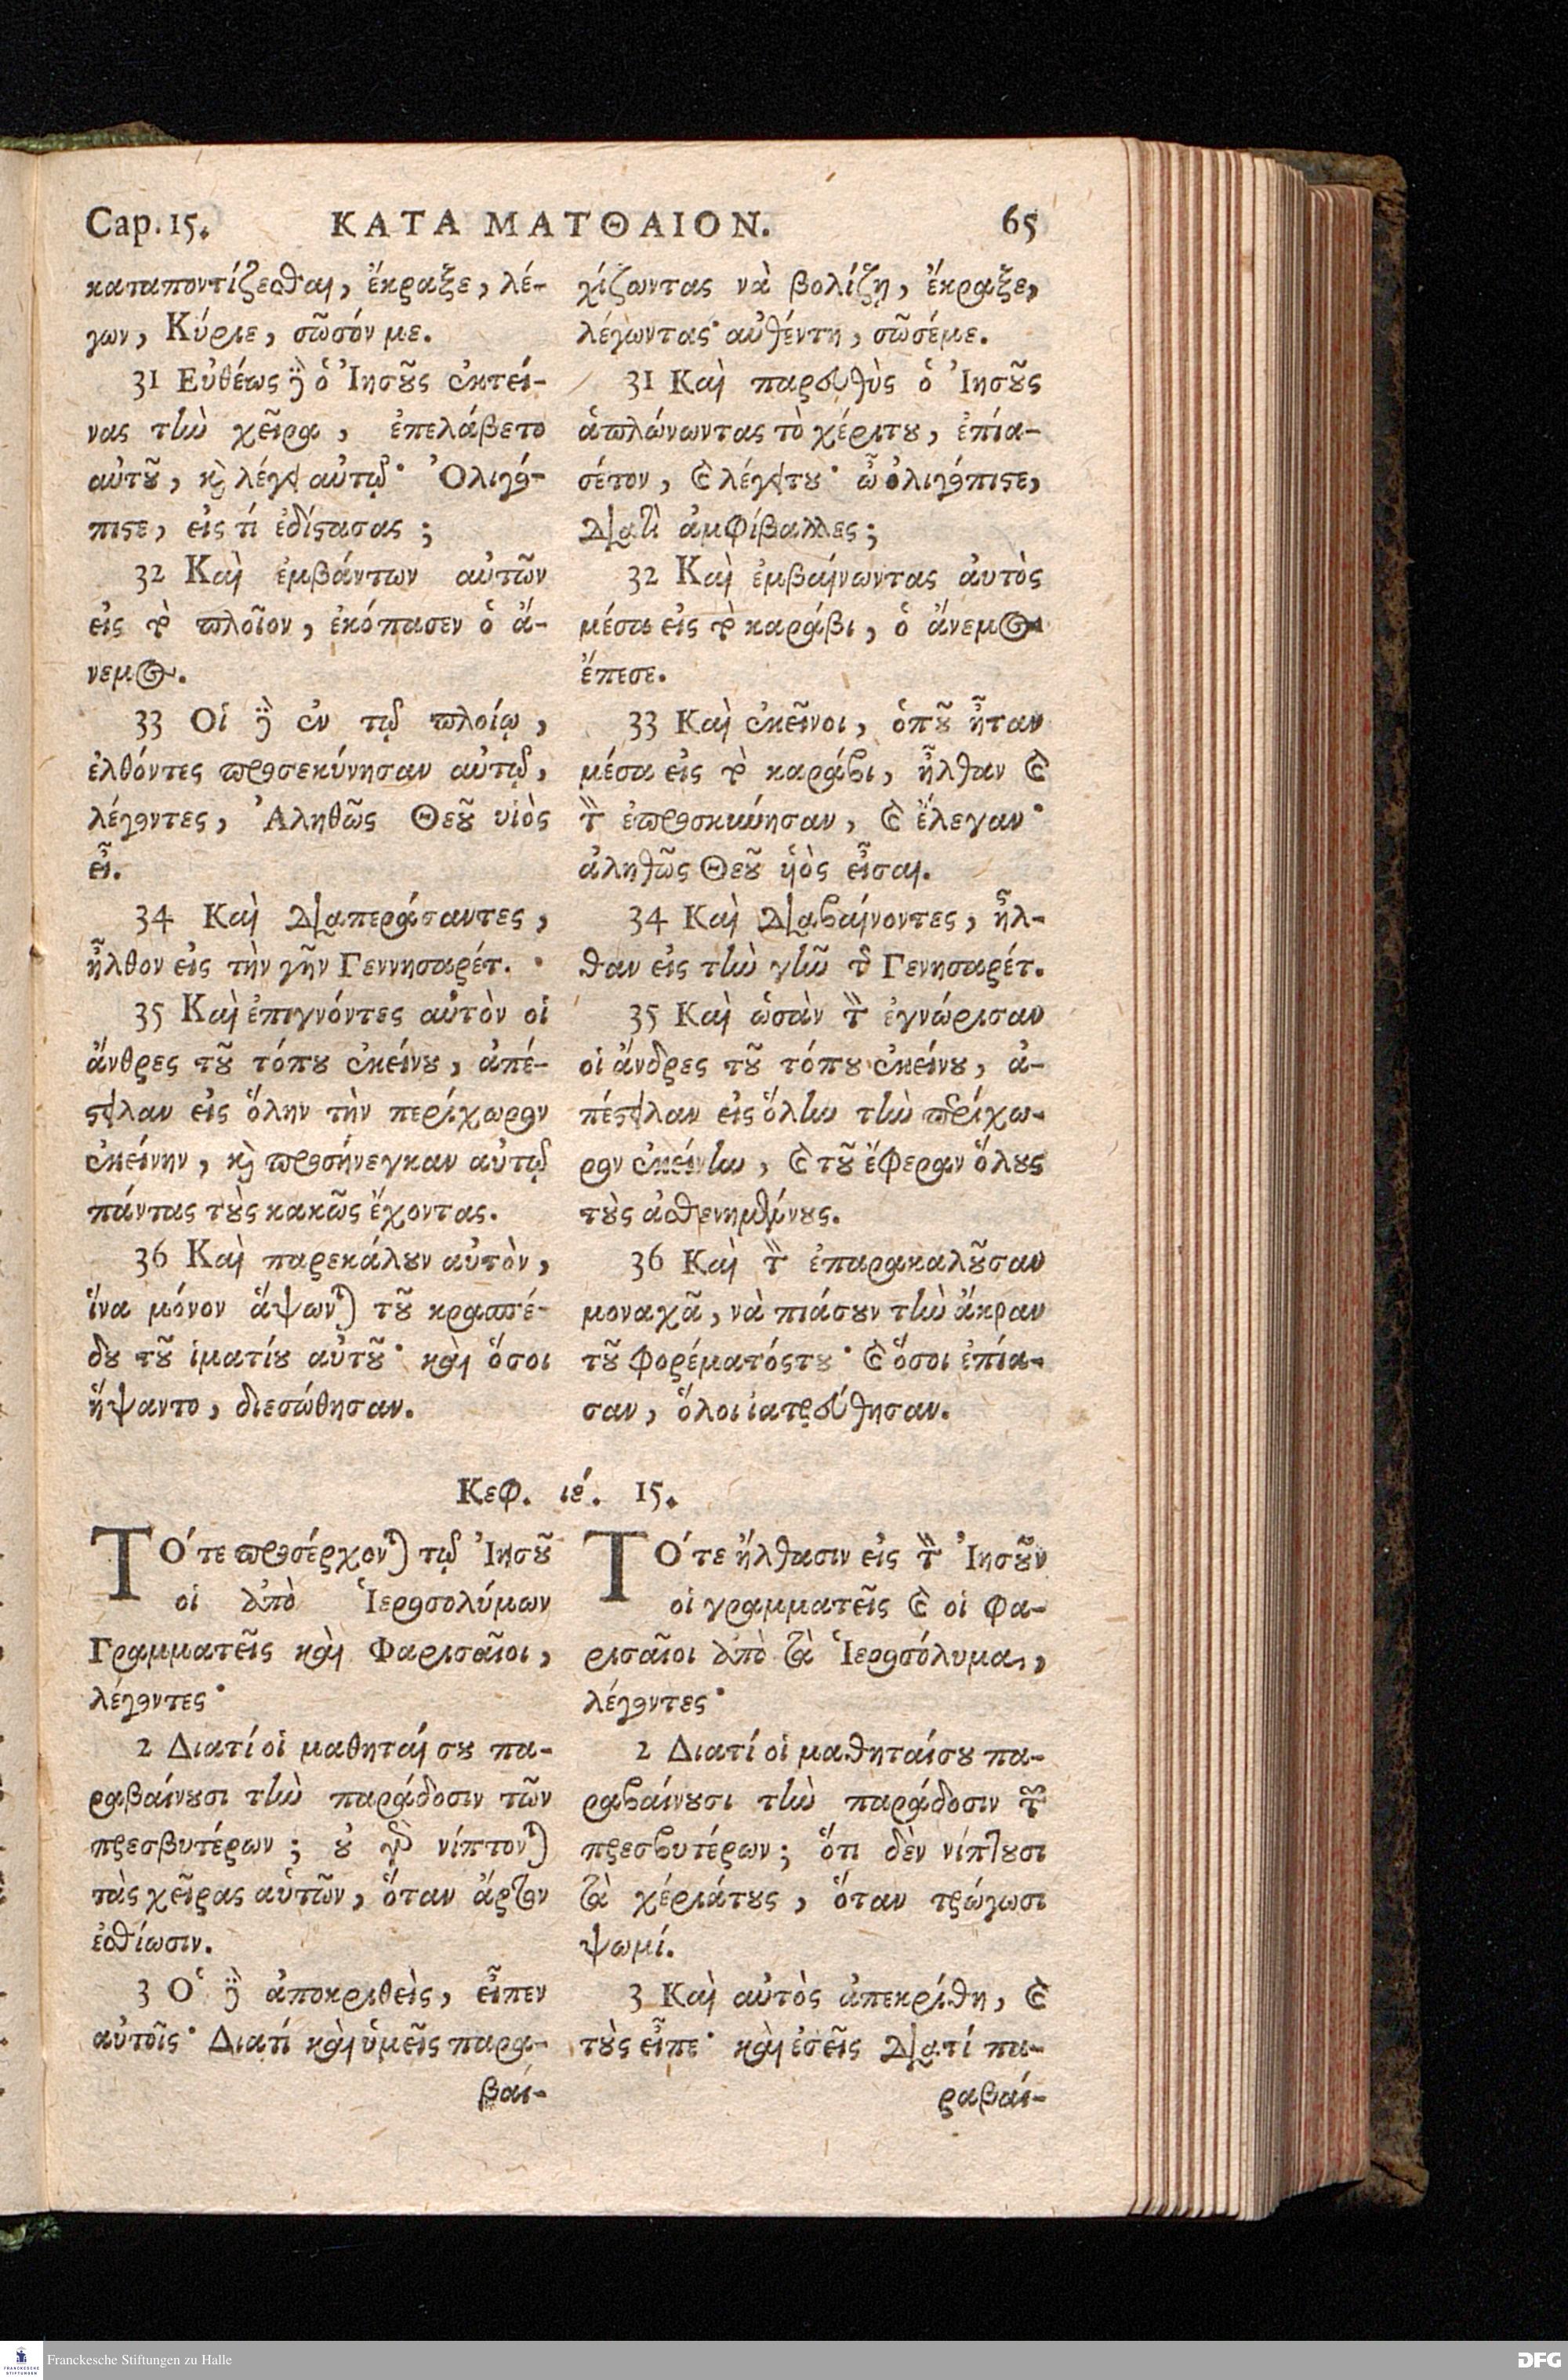 Cap. 15. ΚΑΤΑ ΜΑΤΘΑΙΟΝ. 65
καταποντίζεσθαι, ἔκραξε, λέ-
γων, Κύριε, σῶσόν με.
31 Εὐθέως δὲ ὁ Ἰησοῦς ἐκτεί-
νας τὴν χεῖρα, ἐπελάβετο
αὐτοῦ, καὶ λέγει αὐτῷ· Ὀλιγό-
πιστε, εἰς τί ἐδίστασας;
32 Καὶ ἐμβάντων αὐτῶν
εἰς τὸ πλοῖον, ἐκόπασεν ὁ ἄ-
νεμος.
33 Οἱ δὲ ἐν τῷ πλοίῳ,
ἐλθόντες προσεκύνησαν αὐτῷ,
λέγοντες, Ἀληθῶς Θεοῦ υἱὸς
εἶ.
34 Καὶ διαπεράσαντες,
ἦλθον εἰς τὴν γῆν Γεννησαρέτ.
35 Καὶ ἐπιγνόντες αὐτὸν οἱ
ἄνθρες τοῦ τόπου ἐκείνου, ἀπέ-
στειλαν εἰς ὅλην τὴν περίχωρον
ἐκείνην, καὶ προσήνεγκαν αὐτῷ
πάντας τοὺς κακῶς ἔχοντας.
36 Καὶ παρεκάλουν αὐτὸν,
ἵνα μόνον ἅψωνται τοῦ κρασπέ-
δου τοῦ ἱματίου αὐτοῦ· καὶ ὅσοι
ἥψαντο, διεσώθησαν.
χίζωντας νὰ βολίζῃ, ἔκραξε,
λέγωντας· αὐθέντη, σῶσέμε.
31 Καὶ παρευθὺς ὁ Ἰησοῦς
ἁπλώνωντας τὸ χέριτου, ἐπία-
σέτον, καὶ λέγειτου· ὦ ὀλιγόπιστε,
διατὶ ἀμφίβαλλες;
32 Καὶ ἐμβαίνωντας ἀυτὸς
μέσα εἰς τὸ καράβι, ὁ ἄνεμος
ἔπεσε.
33 Καὶ ἐκεῖνοι, ὁποῦ ἦταν
μέσα εἰς τὸ καράβι, ἦλθαν καὶ
τὸν ἐπροσκυνήσαν, καὶ ἔλεγαν·
ἀληθῶς Θεοῦ ὑιὸς εἶσαι.
34 Καὶ διαβαίνοντες, ἦλ-
θαν εἰς τὴν γῆν τοῦ Γενησαρέτ.
35 Καὶ ὡσὰν τὸν ἐγνώρισαν
οἱ ἄνδρες τοῦ τόπου ἐκείνου, ἀ-
πέστειλαν εἰς ὅλην τὴν περίχω-
ρον ἐκείνην, καὶ τοῦ ἔφεραν ὅλους
τοὺς ἀσθενημένους.
36 Καὶ τὸν ἐπαρακαλοῦσαν
μοναχᾶ, νὰ πιάσουν τὴν ἄκραν
τοῦ φορέματόςτου· καὶ ὅσοι ἐπία-
σαν, ὅλοι ἰατρεύθησαν.
Κεφ. ιέ. 15.
ΤΌτε προσέρχονται τῷ Ἰησοῦ
οἱ ἀπὸ Ἱεροσολύμων
Γραμματεῖς καὶ Φαρισαῖοι,
λέγοντες·
2 Διατί οἱ μαθηταί σου πα-
ραβαίνουσι τὴν παράδοσιν τῶν
πρεσβυτέρων; οὐ γὰρ νίπτονται
τὰς χεῖρας αὑτῶν, ὅταν ἄρτον
ἐσθίωσιν.
3 Ὁ δὲ ἀποκριθεὶς, εἶπεν
αὐτοῖς· Διατί καὶ ὑμεῖς παρα-
βαί-
ΤΌτε ἤλθασιν εἰς τὸν Ἰησοῦν
οἱ γραμματεῖς καὶ οἱ Φα-
ρισαῖοι ἀπὸ τὰ Ἱεροσόλυμα,
λέγοντες·
2 Διατί οἱ μαθηταίσου πα-
ραβαίνουσι τὴν παράδοσιν τῶν
πρεσβυτέρων; ὅτι δὲν νίπτουσι
τὰ χέριάτους, ὅταν τρώγωσι
ψωμί.
3 Καὶ αὐτὸς ἀπεκρίθη, καὶ
τοὺς εἶπε· καὶ ἐσεῖς διατί πα-
ραβαί-
FRANCKESCHE STIFTUNGEN
Franckesche Stiftungen zu Halle
DFG